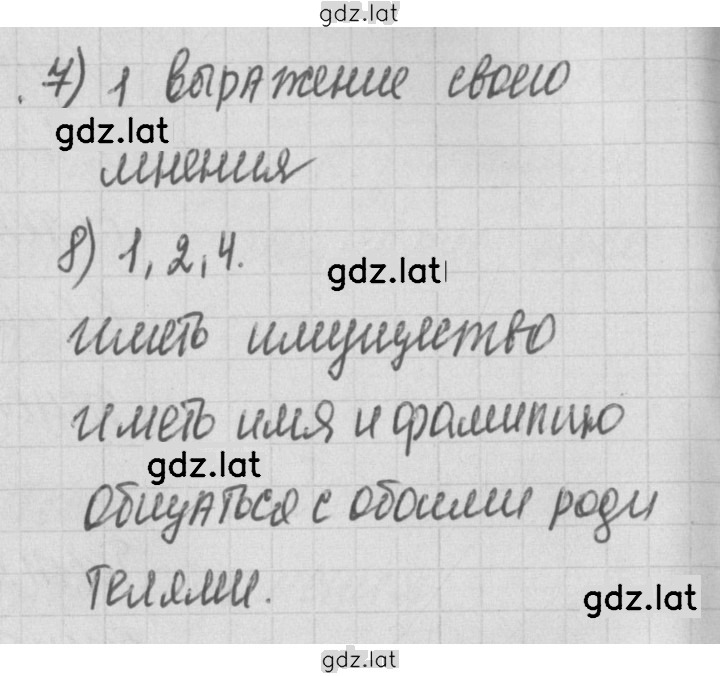 gdz.lat
7) 1 выражение своего
gdz.lat
мнения
8) 1, 2, 4.
gdz.lat
иметь имущество
иметь имя и фамилию
gdz.lat
Общаться с обоими роди
телями.
gdz.lat
gdz.lat